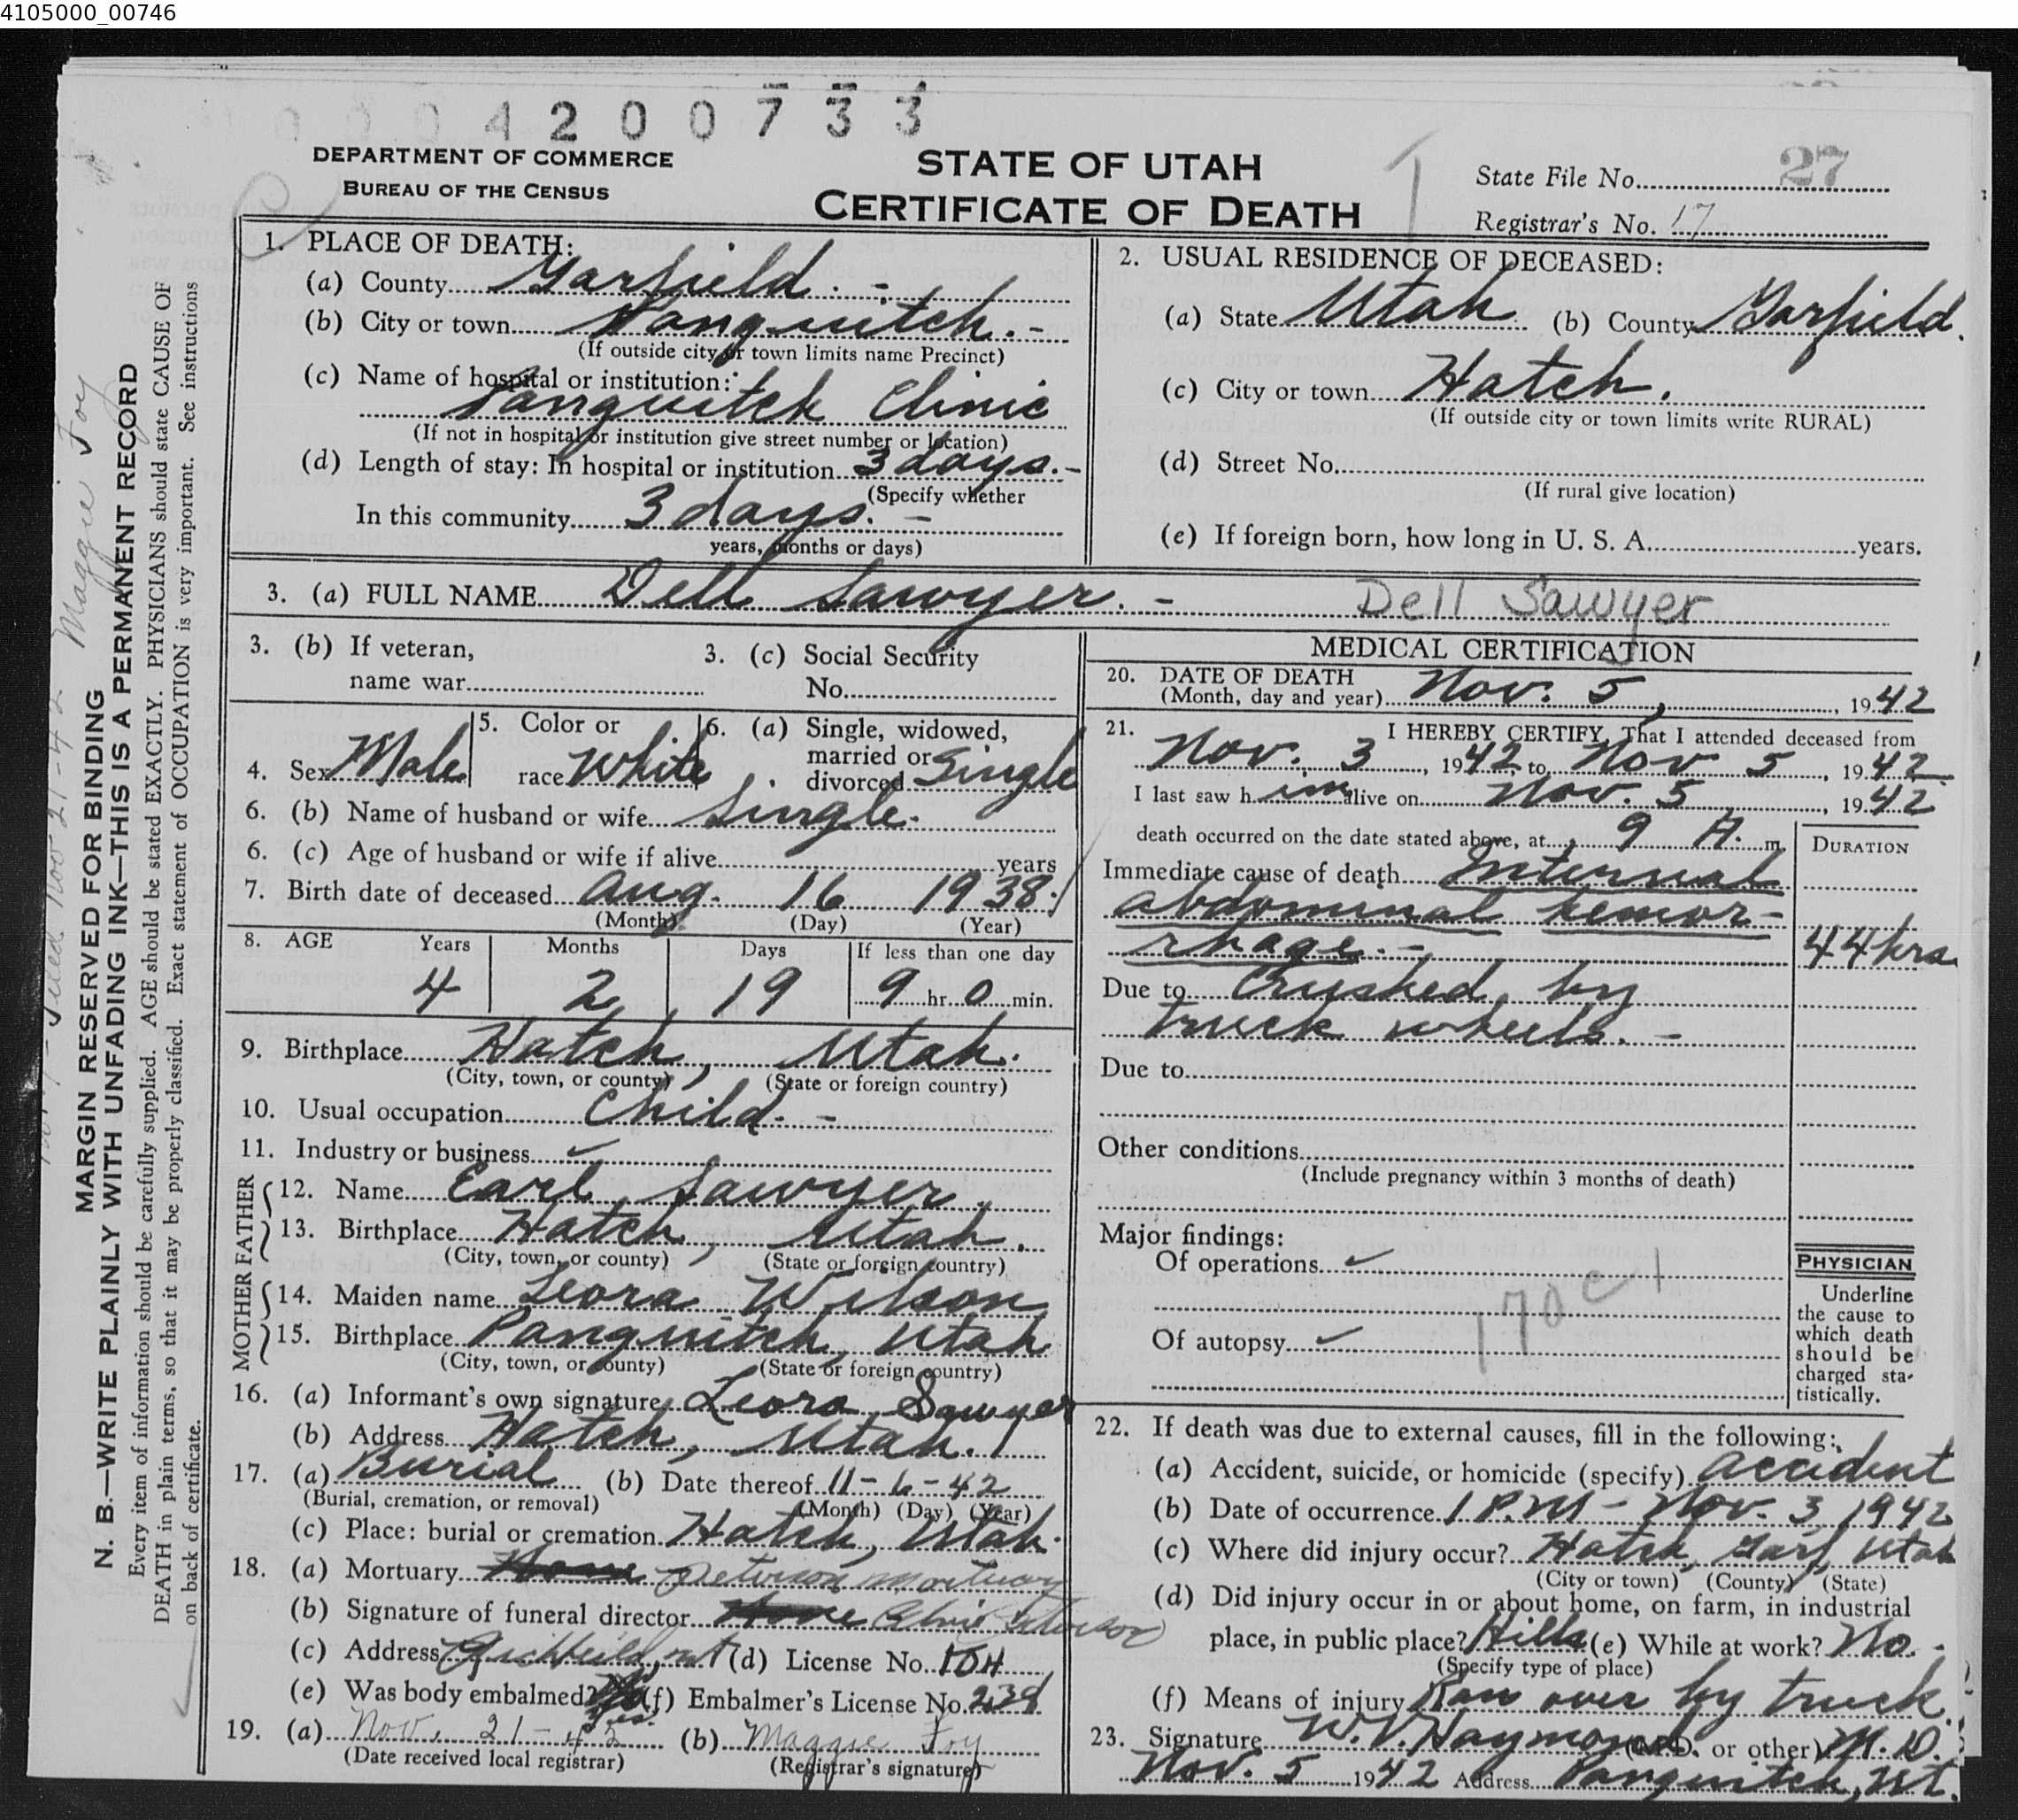 4105000_00746
0004200733
DEPARTMENT OF COMMERCE
BUREAU OF THE CENSUS
STATE OF UTAH
CERTIFICATE OF DEATH
State File No. 27
Registrar's No. 17
1. PLACE OF DEATH:
(a) County Garfield.-
(b) City or town Panguitch.-
(If outside city or town limits name Precinct)
(c) Name of hospital or institution:
Panguitch Clinic
(If not in hospital or institution give street number or location)
(d) Length of stay: In hospital or institution 3 days.-
(Specify whether
In this community 3 days.-
years, months or days)
2. USUAL RESIDENCE OF DECEASED:
(a) State Utah (b) County Garfield.
(c) City or town Hatch.
(If outside city or town limits write RURAL)
(d) Street No.
(If rural give location)
(e) If foreign born, how long in U. S. A. years.
3. (a) FULL NAME Dell Sawyer.- Dell Sawyer
3. (b) If veteran,
name war
3. (c) Social Security
No.
4. Sex Male
5. Color or
race White
6. (a) Single, widowed,
married or
divorced Single
6. (b) Name of husband or wife Single.
6. (c) Age of husband or wife if alive years
7. Birth date of deceased Aug. 16 1938.
(Month) (Day) (Year)
8. AGE Years Months Days If less than one day
4 2 19 9 hr. 0 min.
9. Birthplace Hatch, Utah.
(City, town, or county) (State or foreign country)
10. Usual occupation Child.-
11. Industry or business ✓
FATHER
12. Name Earl Sawyer.
13. Birthplace Hatch, Utah.
(City, town, or county) (State or foreign country)
MOTHER
14. Maiden name Leora Wilson
15. Birthplace Panguitch, Utah
(City, town, or county) (State or foreign country)
16. (a) Informant's own signature Leora Sawyer
(b) Address Hatch, Utah.
17. (a) Burial (b) Date thereof 11-6-42
(Burial, cremation, or removal) (Month) (Day) (Year)
(c) Place: burial or cremation Hatch, Utah.
18. (a) Mortuary Peterson Mortuary
(b) Signature of funeral director
(c) Address Richfield, ut (d) License No. 104
(e) Was body embalmed? Yes. (f) Embalmer's License No. 238
19. (a) Nov. 21-42 (b) Maggie Foy
(Date received local registrar) (Registrar's signature)
MEDICAL CERTIFICATION
20. DATE OF DEATH
(Month, day and year) Nov. 5, 1942
21. I HEREBY CERTIFY, That I attended deceased from
Nov. 3, 1942, to Nov 5, 1942
I last saw him alive on Nov. 5, 1942
death occurred on the date stated above, at 9 A. m.
DURATION
Immediate cause of death Internal
abdominal hemor-
rhage.- 44 hrs
Due to Crushed by
truck wheels.-
Due to
Other conditions
(Include pregnancy within 3 months of death)
Major findings:
Of operations ✓
170 c1
Of autopsy ✓
PHYSICIAN
Underline
the cause to
which death
should be
charged sta-
tistically.
22. If death was due to external causes, fill in the following:
(a) Accident, suicide, or homicide (specify) Accident
(b) Date of occurrence 1 P.M - Nov. 3, 1942
(c) Where did injury occur? Hatch, Garf, Utah
(City or town) (County) (State)
(d) Did injury occur in or about home, on farm, in industrial
place, in public place? Hills (e) While at work? No.
(Specify type of place)
(f) Means of injury Ran over by truck.
23. Signature W.V. Haymond (M.D. or other) M.D.
Nov. 5 1942 Address Panguitch, Ut.
MARGIN RESERVED FOR BINDING
N. B.—WRITE PLAINLY WITH UNFADING INK—THIS IS A PERMANENT RECORD
Every item of information should be carefully supplied. AGE should be stated EXACTLY. PHYSICIANS should state CAUSE OF
DEATH in plain terms, so that it may be properly classified. Exact statement of OCCUPATION is very important. See instructions
on back of certificate.
Filed Nov 21-42 Maggie Foy